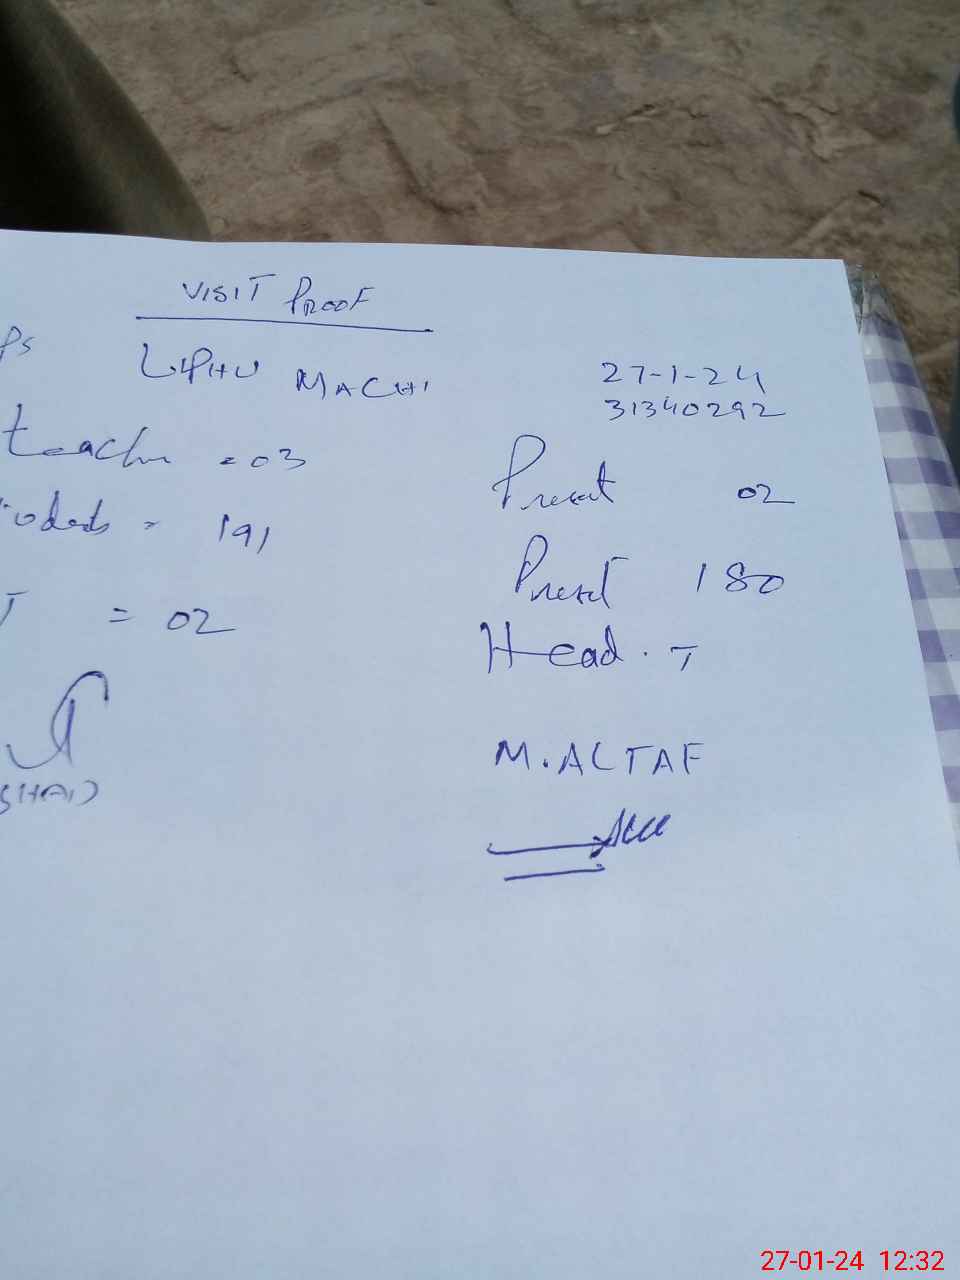 VISIT PROOF
PS
LAPHU MACHI
27-1-24
31340292
teacher = 03
Present 02
students = 191
Present 180
T = 02
Head. T
M. ALTAF
SHAD
27-01-24 12:32